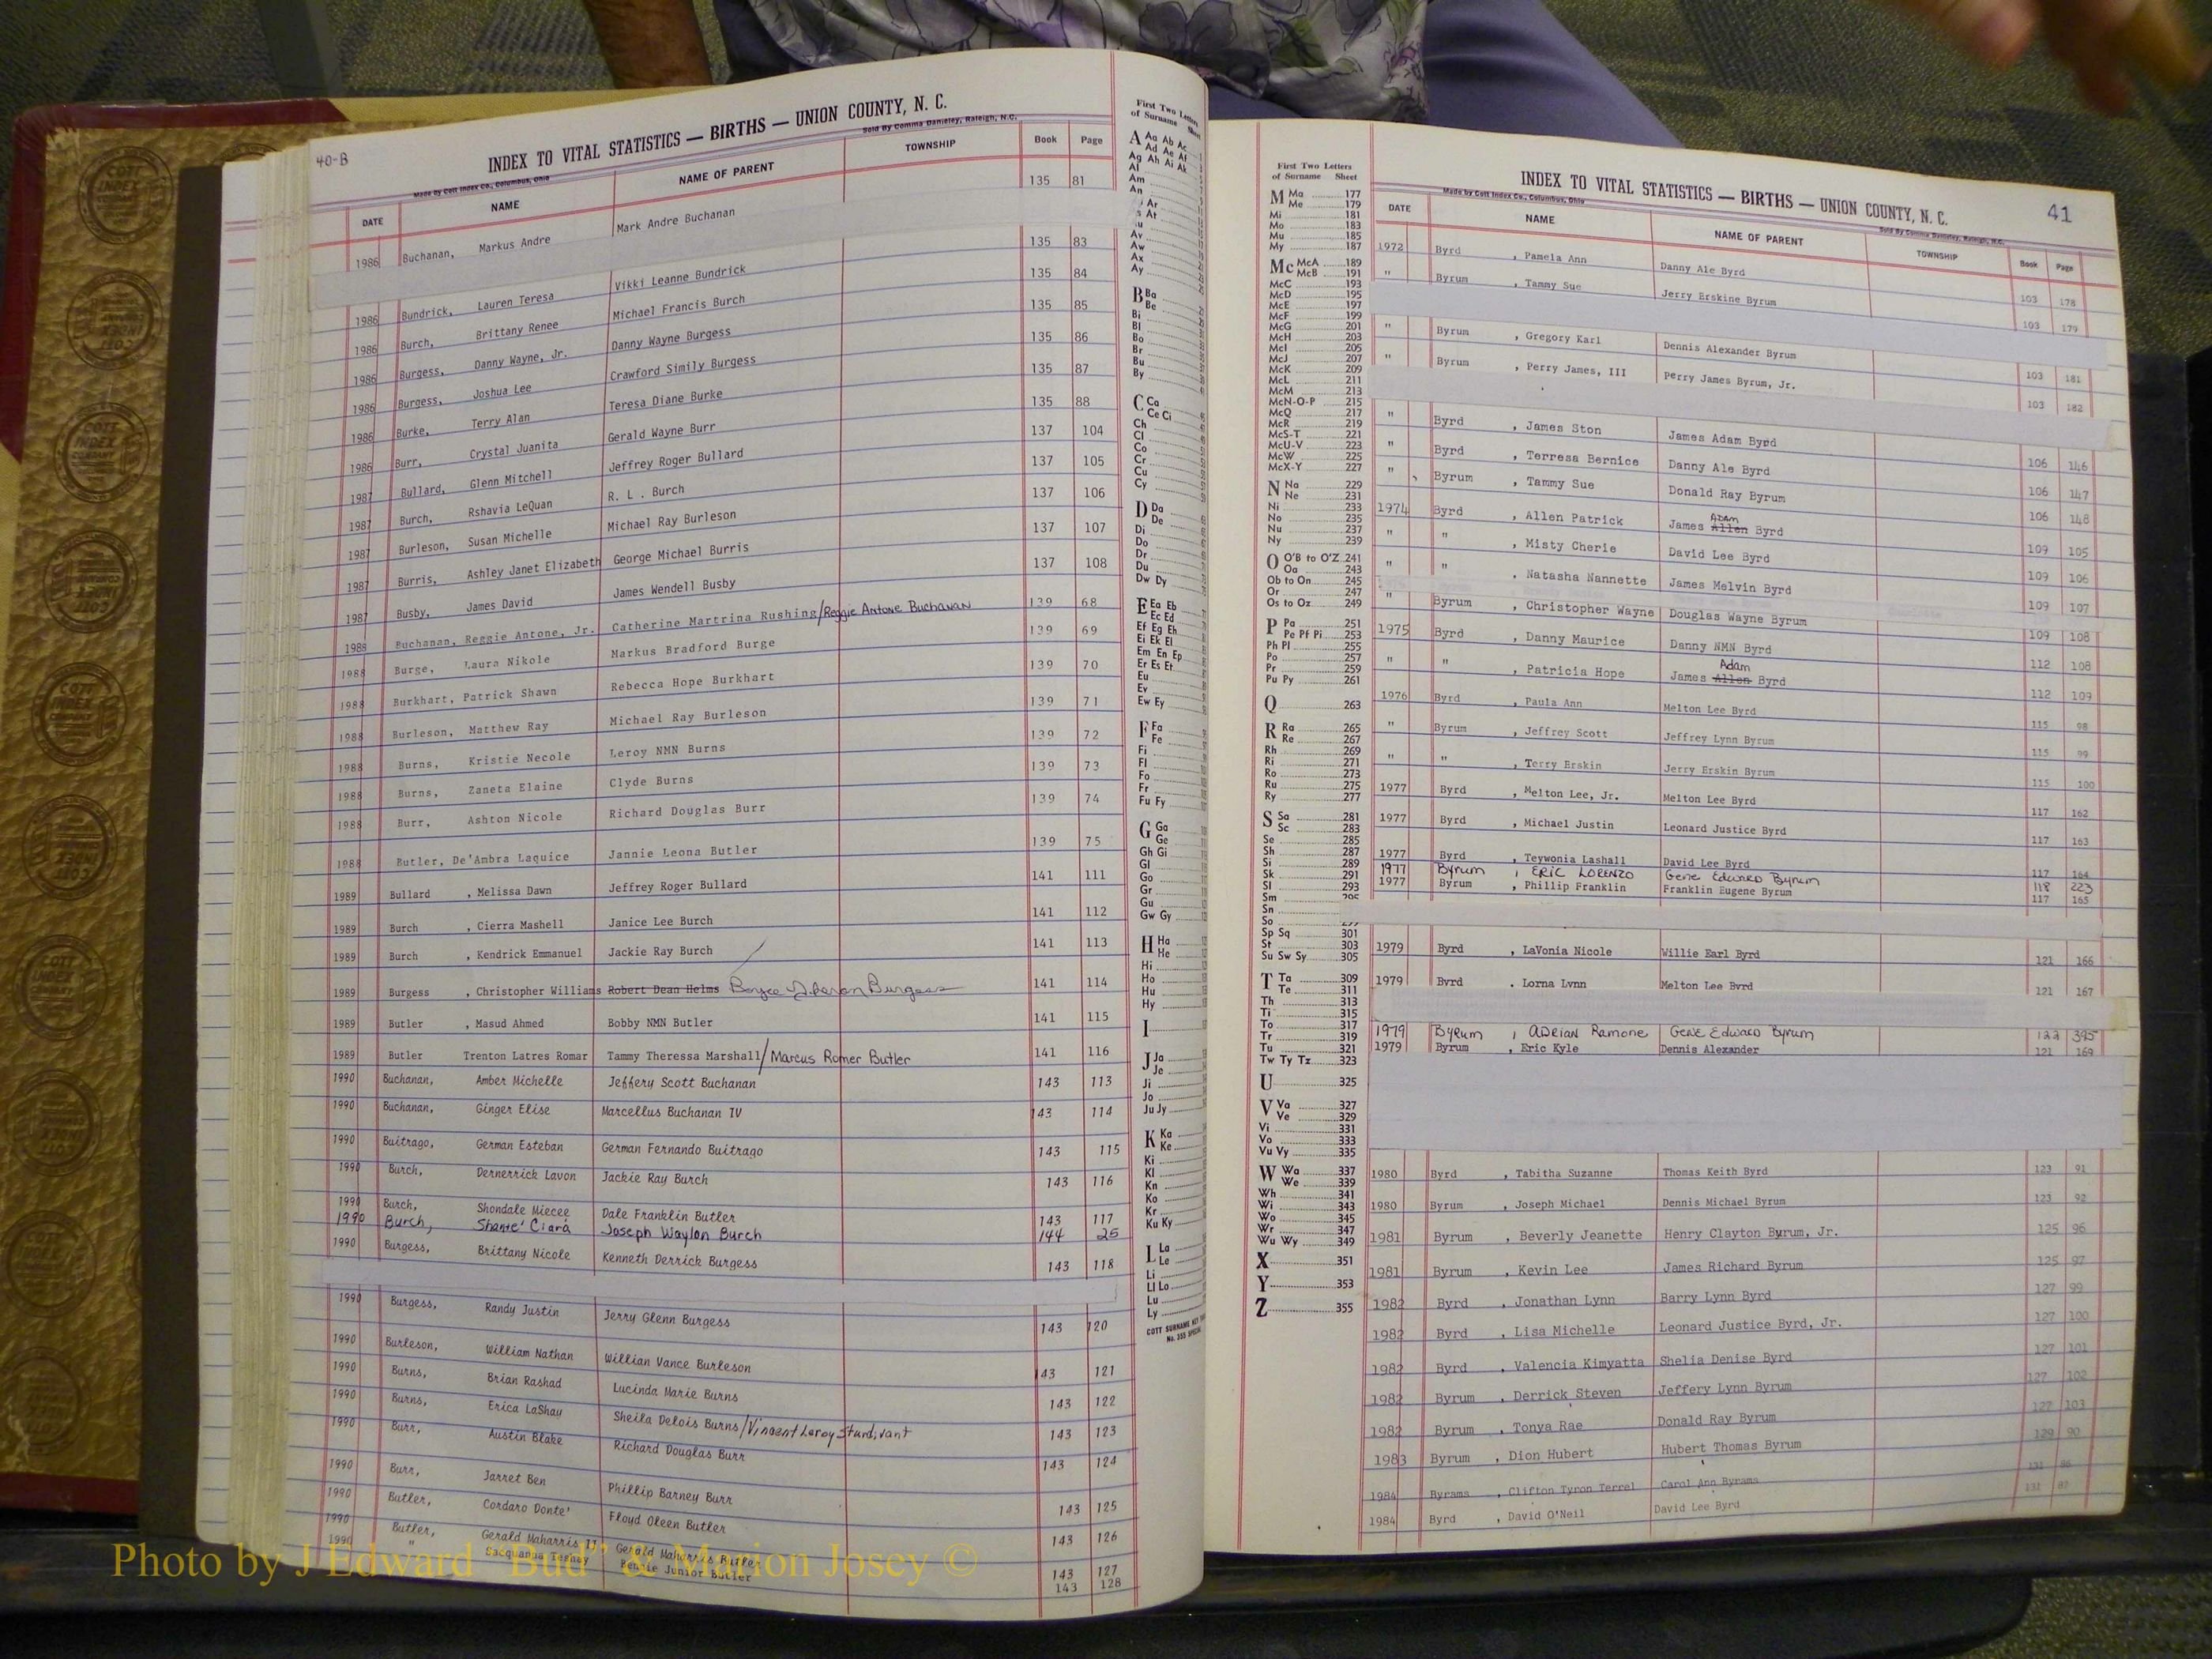 40-B
INDEX TO VITAL STATISTICS — BIRTHS — UNION COUNTY, N. C.
Made by Cott Index Co., Columbus, Ohio
Sold By Comma Danieley, Raleigh, N.C.
DATE NAME NAME OF PARENT TOWNSHIP Book Page
1986 Buchanan, Markus Andre Mark Andre Buchanan 135 81
1986 Bundrick, Lauren Teresa Vikki Leanne Bundrick 135 83
1986 Burch, Brittany Renee Michael Francis Burch 135 84
1986 Burgess, Danny Wayne, Jr. Danny Wayne Burgess 135 85
1986 Burgess, Joshua Lee Crawford Simily Burgess 135 86
1986 Burke, Terry Alan Teresa Diane Burke 135 87
1986 Burr, Crystal Juanita Gerald Wayne Burr 135 88
1987 Bullard, Glenn Mitchell Jeffrey Roger Bullard 137 104
1987 Burch, Rshavia LeQuan R. L . Burch 137 105
1987 Burleson, Susan Michelle Michael Ray Burleson 137 106
1987 Burris, Ashley Janet Elizabeth George Michael Burris 137 107
1987 Busby, James David James Wendell Busby 137 108
1988 Buchanan, Reggie Antone, Jr. Catherine Martrina Rushing/Reggie Antone Buchanan 139 68
1988 Burge, Laura Nikole Markus Bradford Burge 139 69
1988 Burkhart, Patrick Shawn Rebecca Hope Burkhart 139 70
1988 Burleson, Matthew Ray Michael Ray Burleson 139 71
1988 Burns, Kristie Necole Leroy NMN Burns 139 72
1988 Burns, Zaneta Elaine Clyde Burns 139 73
1988 Burr, Ashton Nicole Richard Douglas Burr 139 74
1988 Butler, De'Ambra Laquice Jannie Leona Butler 139 75
1989 Bullard , Melissa Dawn Jeffrey Roger Bullard 141 111
1989 Burch , Cierra Mashell Janice Lee Burch 141 112
1989 Burch , Kendrick Emmanuel Jackie Ray Burch 141 113
1989 Burgess , Christopher Williams Robert Dean Helms Burgess 141 114
1989 Butler , Masud Ahmed Bobby NMN Butler 141 115
1989 Butler Trenton Latres Romar Tammy Theressa Marshall/Marcus Romer Butler 141 116
1990 Buchanan, Amber Michelle Jeffery Scott Buchanan 143 113
1990 Buchanan, Ginger Elise Marcellus Buchanan IV 143 114
1990 Buitrago, German Esteban German Fernando Buitrago 143 115
1990 Burch, Dernerrick Lavon Jackie Ray Burch 143 116
1990 Burch, Shondale Miecee Dale Franklin Butler 143 117
1990 Burch, Shante' Ciara Joseph Waylon Burch 144 25
1990 Burgess, Brittany Nicole Kenneth Derrick Burgess 143 118
1990 Burgess, Randy Justin Jerry Glenn Burgess 143 120
1990 Burleson, William Nathan Willian Vance Burleson 143 121
1990 Burns, Brian Rashad Lucinda Marie Burns 143 122
1990 Burns, Erica LaShay Sheila Delois Burns/Vincent Leroy Sturdivant 143 123
1990 Burr, Austin Blake Richard Douglas Burr 143 124
1990 Burr, Jarret Ben Phillip Barney Burr 143 125
1990 Butler, Cordaro Donte' Floyd Oleen Butler 143 126
1990 Butler, Gerald Maharris 11 Gerald Maharris Butler 143 127
1990 " Bennie Junior Butler 143 128
First Two Letters
of Surname
A Aa Ab Ac
Ad Ae Af
Ag Ah Ai Ak
Al
Am
An
Ar
At
Av
Aw
Ax
Ay
B Ba
Be
Bi
Bl
Bo
Br
Bu
By
C Ca
Ce Ci
Ch
Cl
Co
Cr
Cu
Cy
D Da
De
Di
Do
Dr
Du
Dw Dy
E Ea Eb
Ec Ed
Ef Eg Eh
Ei Ek El
Em En Ep
Er Es Et
Eu
Ev
Ew Ey
F Fa
Fe
Fi
Fl
Fo
Fr
Fu Fy
G Ga
Ge
Gh Gi
Gl
Go
Gr
Gu
Gw Gy
H Ha
He
Hi
Ho
Hu
Hy
I
J Ja
Je
Ji
Jo
Ju Jy
K Ka
Ke
Ki
Kl
Kn
Ko
Kr
Ku Ky
L La
Le
Li
Ll Lo
Lu
Ly
COTT SURNAME KEY
No. 355 SPECIAL
First Two Letters
of Surname Sheet
M Ma 177
Me 179
Mi 181
Mo 183
Mu 185
My 187
Mc McA 189
McB 191
McC 193
McD 195
McE 197
McF 199
McG 201
McH 203
McI 205
McJ 207
McK 209
McL 211
McM 213
McN-O-P 215
McQ 217
McR 219
McS-T 221
McU-V 223
McW 225
McX-Y 227
N Na 229
Ne 231
Ni 233
No 235
Nu 237
Ny 239
O O'B to O'Z 241
Oa 243
Ob to On 245
Or 247
Os to Oz 249
P Pa 251
Pe Pf Pi 253
Ph Pl 255
Po 257
Pr 259
Pu Py 261
Q 263
R Ra 265
Re 267
Rh 269
Ri 271
Ro 273
Ru 275
Ry 277
S Sa 281
Sc 283
Se 285
Sh 287
Si 289
Sk 291
Sl 293
Sm 295
Sn
So
Sp Sq 301
St 303
Su Sw Sy 305
T Ta 309
Te 311
Th 313
Ti 315
To 317
Tr 319
Tu 321
Tw Ty Tz 323
U 325
V Va 327
Ve 329
Vi 331
Vo 333
Vu Vy 335
W Wa 337
We 339
Wh 341
Wi 343
Wo 345
Wr 347
Wu Wy 349
X 351
Y 353
Z 355
INDEX TO VITAL STATISTICS — BIRTHS — UNION COUNTY, N. C.
41
Made by Cott Index Co., Columbus, Ohio
Sold By Comma Danieley, Raleigh, N.C.
DATE NAME NAME OF PARENT TOWNSHIP Book Page
1972 Byrd , Pamela Ann Danny Ale Byrd 103 178
" Byrum , Tammy Sue Jerry Erskine Byrum 103 179
" Byrum , Gregory Karl Dennis Alexander Byrum 103 181
" Byrum , Perry James, III Perry James Byrum, Jr. 103 182
" Byrd , James Ston James Adam Byrd 106 146
" Byrd , Terresa Bernice Danny Ale Byrd 106 147
" Byrum , Tammy Sue Donald Ray Byrum 106 148
1974 Byrd , Allen Patrick James Allen Adam Byrd 109 105
" " , Misty Cherie David Lee Byrd 109 106
" " , Natasha Nannette James Melvin Byrd 109 107
" Byrum , Christopher Wayne Douglas Wayne Byrum 109 108
1975 Byrd , Danny Maurice Danny NMN Byrd 112 108
" " , Patricia Hope James Allen Adam Byrd 112 109
1976 Byrd , Paula Ann Melton Lee Byrd 115 98
" Byrum , Jeffrey Scott Jeffrey Lynn Byrum 115 99
" " , Terry Erskin Jerry Erskin Byrum 115 100
1977 Byrd , Melton Lee, Jr. Melton Lee Byrd 117 162
1977 Byrd , Michael Justin Leonard Justice Byrd 117 163
1977 Byrd , Teywonia Lashall David Lee Byrd 117 164
1977 Byrum , ERIC LORENZO Gene Edward Byrum 118 223
1977 Byrum , Phillip Franklin Franklin Eugene Byrum 117 165
1979 Byrd , LaVonia Nicole Willie Earl Byrd 121 166
1979 Byrd , Lorna Lynn Melton Lee Byrd 121 167
1979 Byrum , ADRIAN Ramone GENE Edward Byrum 122 395
1979 Byrum , Eric Kyle Dennis Alexander 121 169
1980 Byrd , Tabitha Suzanne Thomas Keith Byrd 123 91
1980 Byrum , Joseph Michael Dennis Michael Byrum 123 92
1981 Byrum , Beverly Jeanette Henry Clayton Byrum, Jr. 125 96
1981 Byrum , Kevin Lee James Richard Byrum 125 97
1982 Byrd , Jonathan Lynn Barry Lynn Byrd 127 99
1982 Byrd , Lisa Michelle Leonard Justice Byrd, Jr. 127 100
1982 Byrd , Valencia Kimyatta Shelia Denise Byrd 127 101
1982 Byrum , Derrick Steven Jeffery Lynn Byrum 127 102
1982 Byrum , Tonya Rae Donald Ray Byrum 127 103
1983 Byrum , Dion Hubert Hubert Thomas Byrum 129 90
1984 Byrams , Clifton Tyron Terrel Carol Ann Byrams 131 86
1984 Byrd , David O'Neil David Lee Byrd 131 87
Photo by J Edward "Bud" & Marion Josey ©